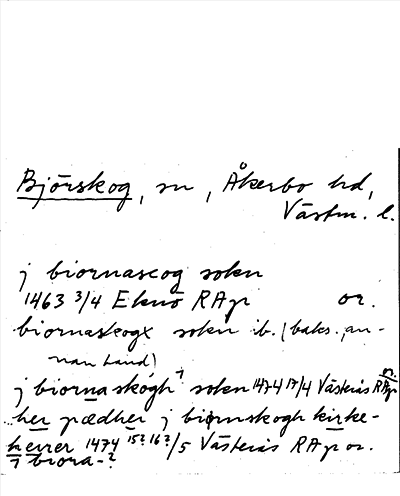 Björskog, sn, Åkerbo hd,
Västm. l.
j biornascog sokn
1463 3/4 Eknö RAp or.
biornaskogx sokn ib. (baks., an-
nan hand)
j biorna skógh 1 sokn 1474 17/4 Västerås RAp or.
her pædher j biornskogh kirke-
herrer 1474 15? 16?/5 Västerås RAp or.
1 biora-?